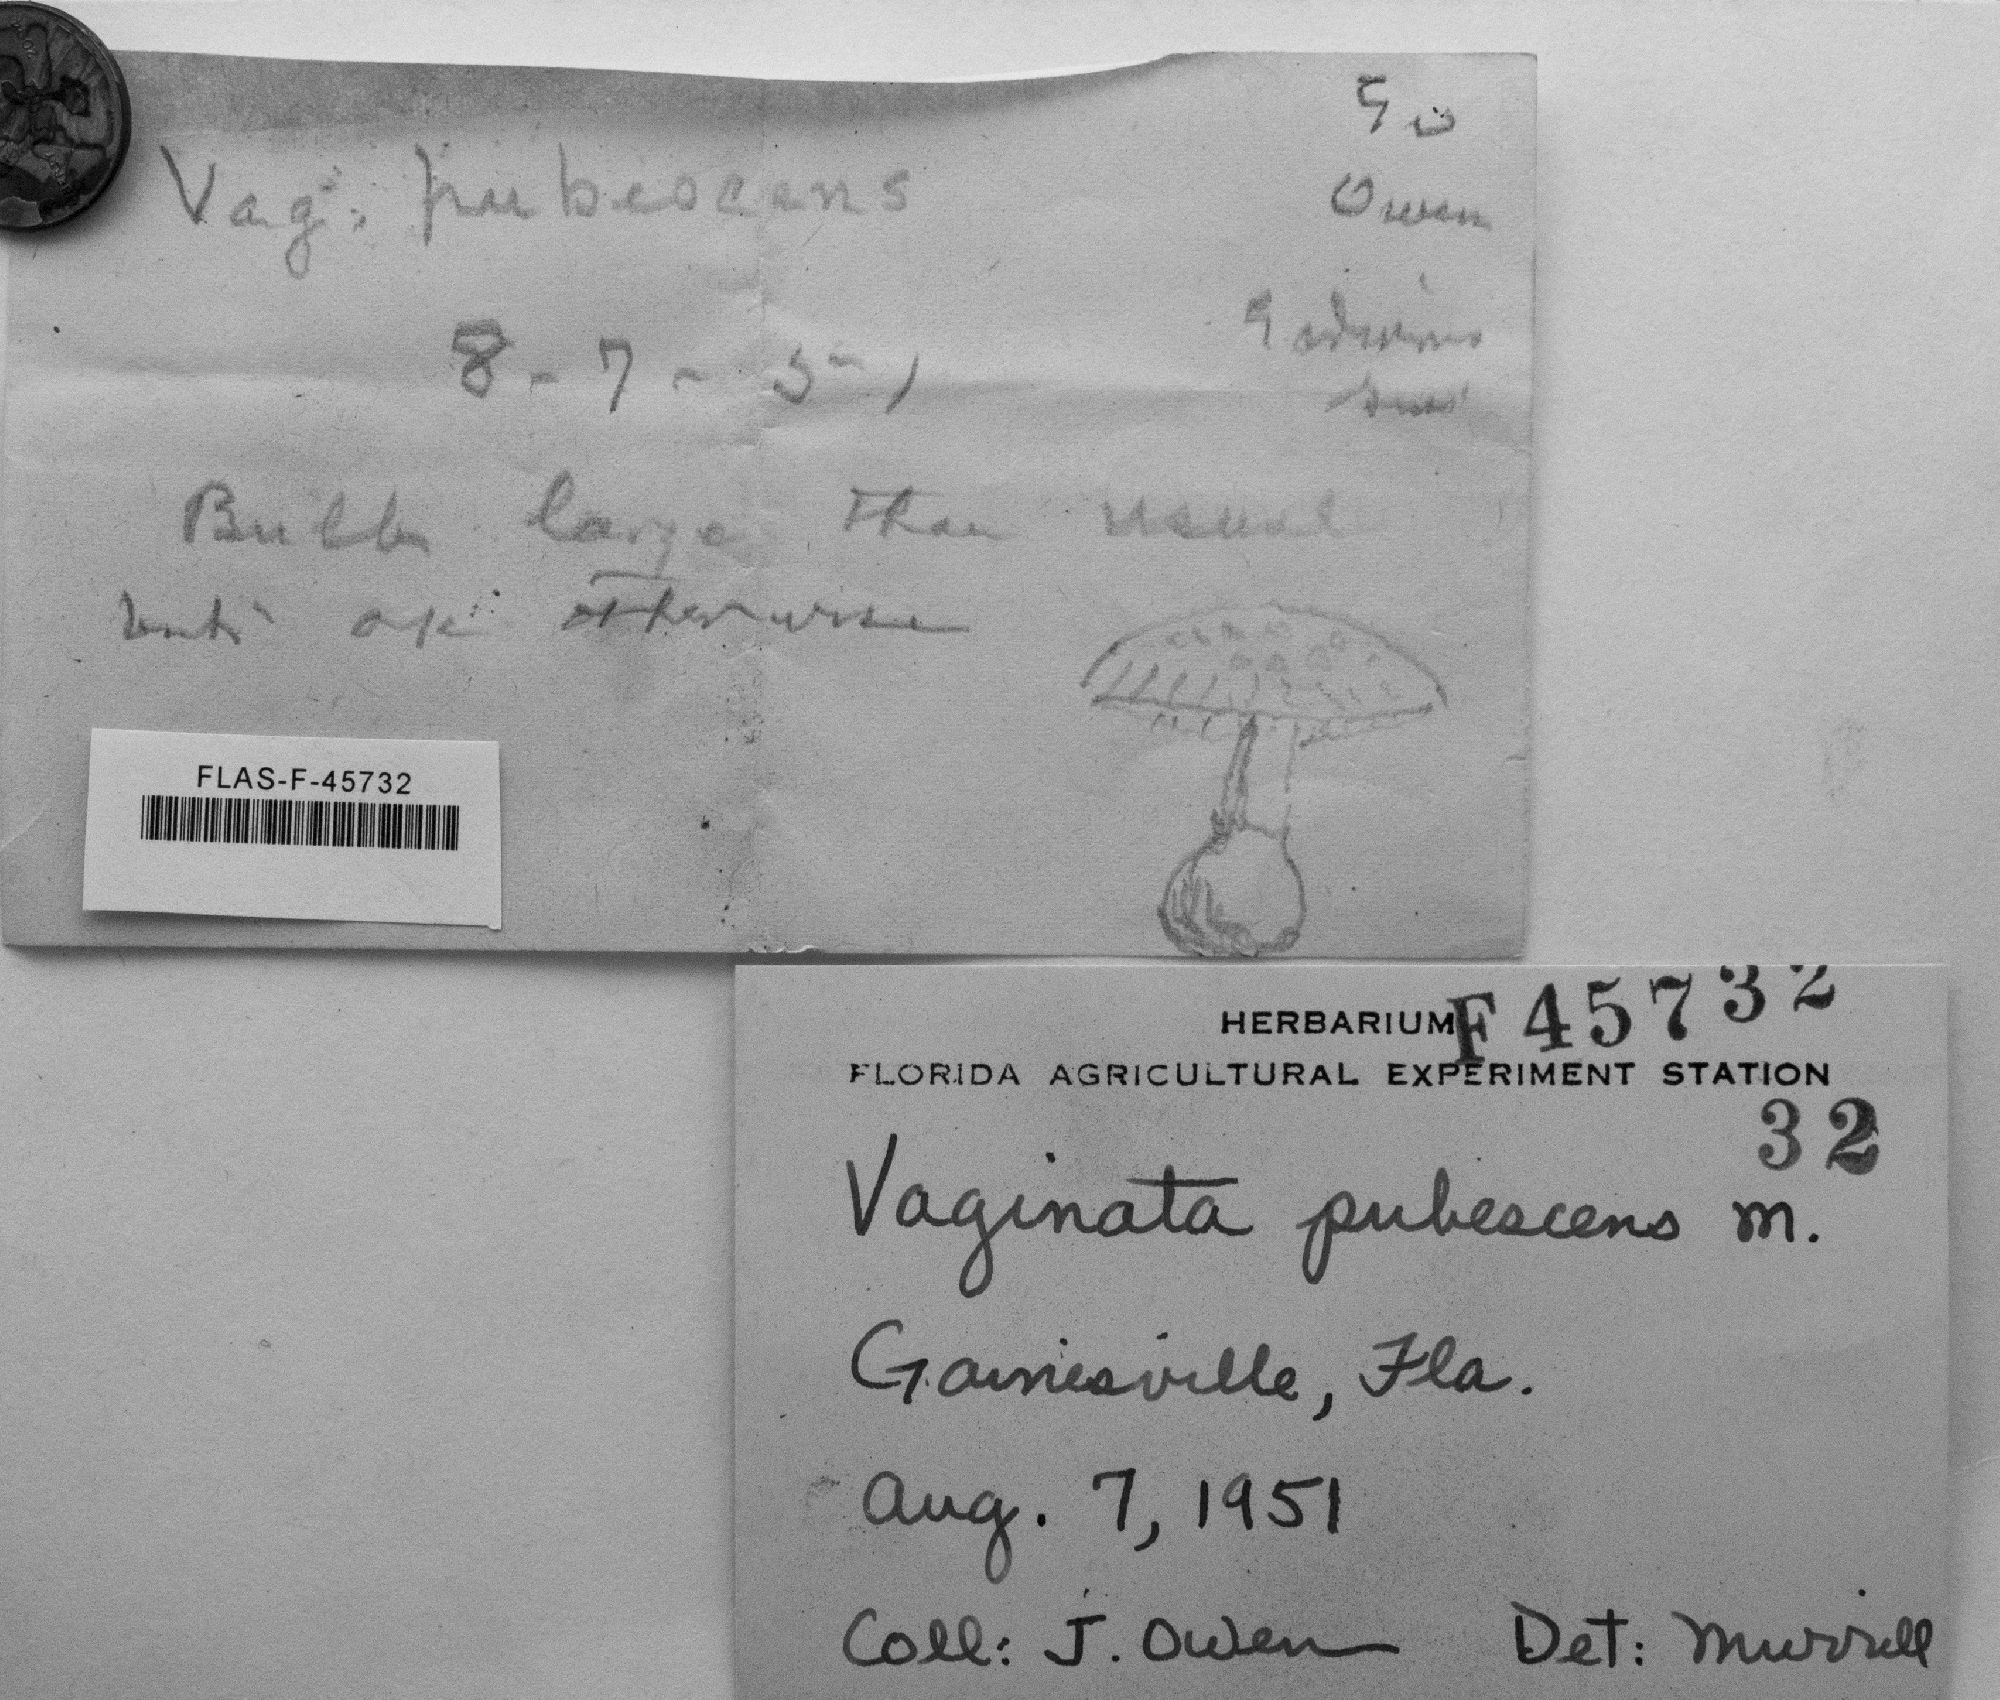 Vag. pubescens
Owen
8-7-51
Bulb large than usual
but ok otherwise
FLAS-F-45732
HERBARIUM F45732
FLORIDA AGRICULTURAL EXPERIMENT STATION
32
Vaginata pubescens m.
Gainesville, Fla.
Aug. 7, 1951
Coll: J. Owen Det: Murrill